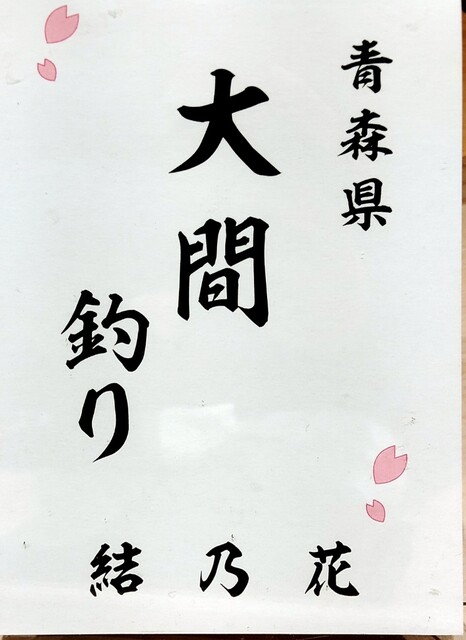 青森県
大間
釣り
花乃結